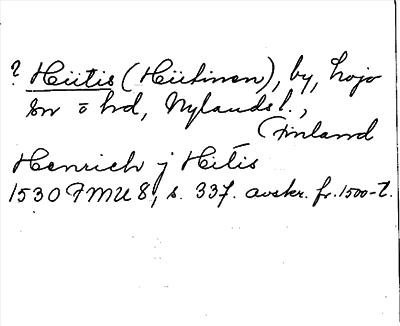 ? Hiitis (Hiitinen), by, Lojo
sn o hd, Nylands l.,
(Finland
Henrich j Hitis
1530 FMU 8, s. 337. avskr. fr. 1500-t.